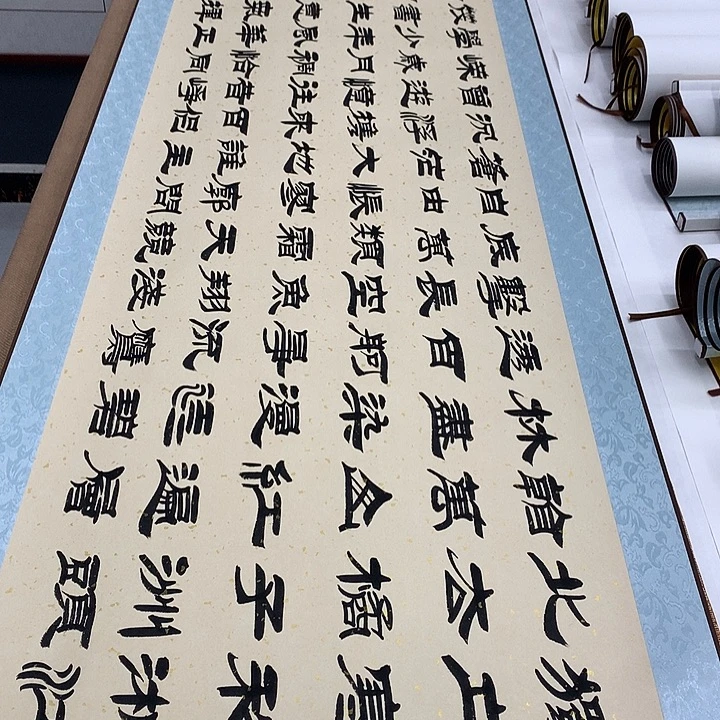 獨立寒秋湘江
北去橘子洲頭
看萬山紅遍層
林盡染漫江碧
透百舸爭流鷹
擊長空魚翔淺
底萬類霜天競
自由悵寥廓問
蒼茫大地誰主
沉浮攜來百侶
曾遊憶往昔崢
嶸歲月稠恰同
學少年風華正
茂書生意氣揮